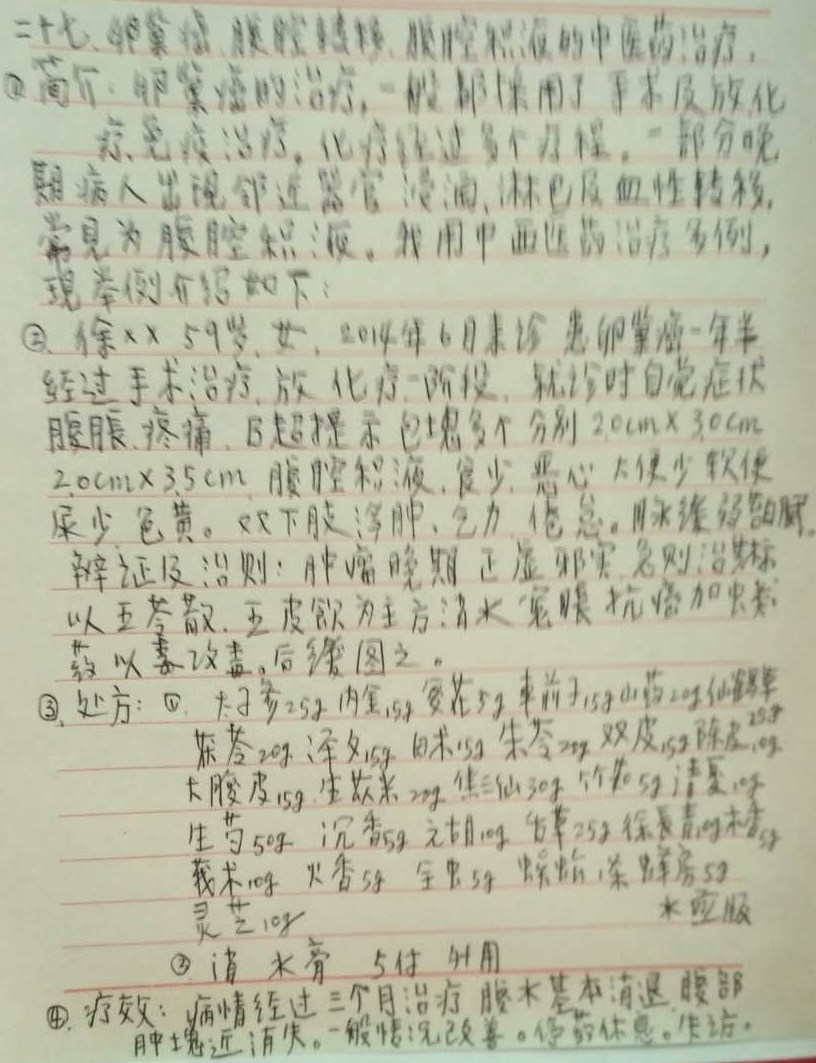 二十七、卵巢癌、腹腔转移、腹腔积液的中医药治疗.
①简介: 卵巢癌的治疗,一般都採用了手术及放化
疗、免疫治疗。化疗经过多个疗程。一部分晚
期病人出现邻近器官浸润、淋巴及血性转移,
常见为腹腔积液。我用中西医药治疗多例,
现举例介绍如下:
②. 徐×× 59岁、女, 2014年6月来诊 患卵巢癌一年半
经过手术治疗, 放化疗一阶段, 就诊时自觉症状
腹胀、疼痛、B超提示包块多个 分别 2.0cm×3.0cm
2.0cm×3.5cm 腹腔积液、食少、恶心 大便少软便
尿少 色黄。双下肢浮肿、乏力、倦怠。脉缓弱苔白腻。
辨证及治则: 肿瘤晚期 正虚邪实 急则治其标
以五苓散、五皮飲为主方消水宽膜 抗癌加虫类
药以毒攻毒。后缓图之。
③. 处方: ①. 太子参25g 内金15g 蒌花5g 車前子15g 山药20g 仙鹤草25g
茯苓20g 泽夕15g 白术15g 朱苓20g 双皮15g 陈皮10g
大腹皮15g 生苡米20g 焦三仙30g 竹茹5g 清夏10g
生芍50g 沉香5g 元胡10g 甘草25g 徐長青10g 木香5g
莪术10g 火香5g 全虫5g 蜈蚣1条 蜂房5g
灵芝10g 水煎服
② 消水膏 5付 外用
④. 疗效: 病情经过三个月治疗 腹水基本消退 腹部
肿块近消失。一般情况改善。停药休息。失访。